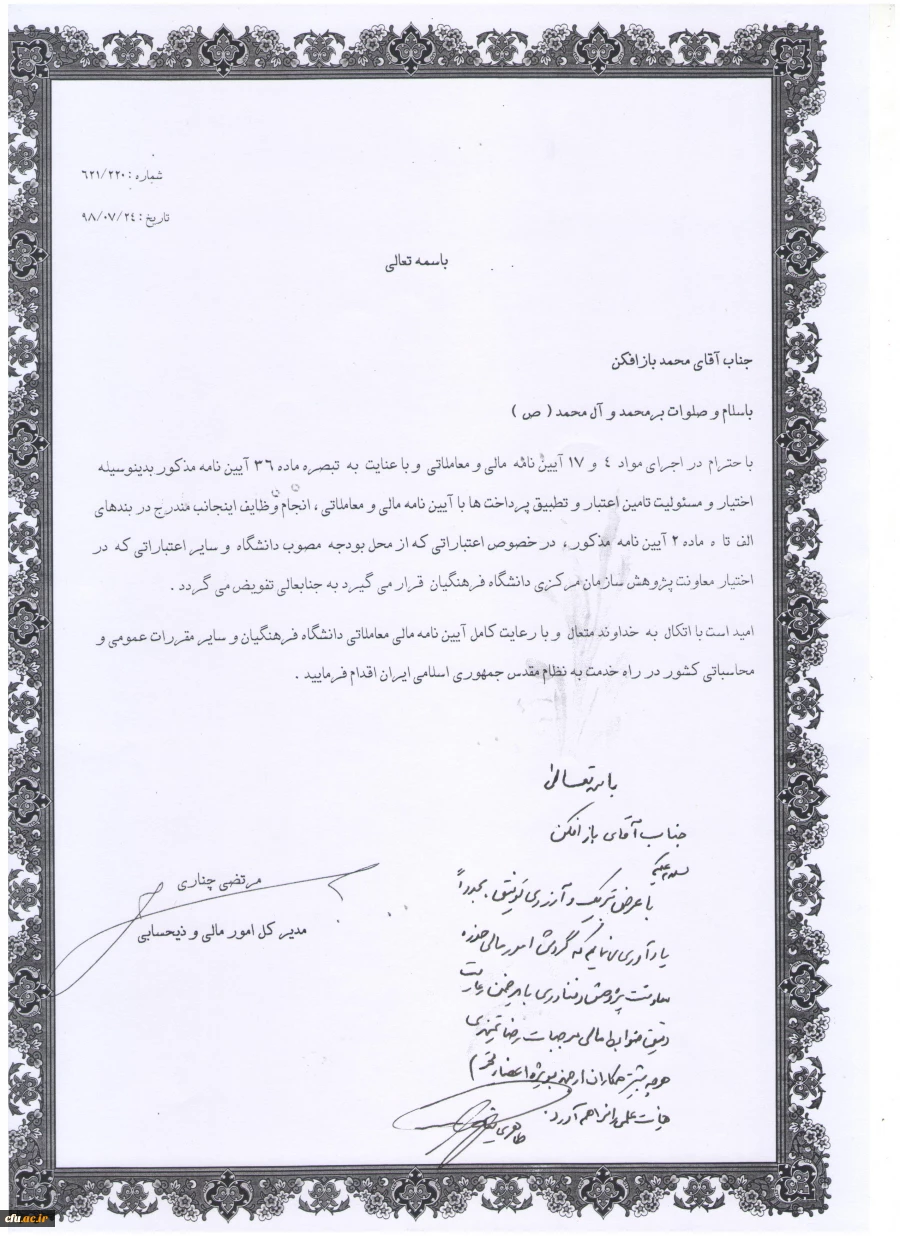 شماره : ٦٢١/٢٢٠
تاریخ : ٩٨/٠٧/٢٤
باسمه تعالی
جناب آقای محمد بازافکن
باسلام و صلوات بر محمد و آل محمد ( ص )
با حترام در اجرای مواد ٤ و ١٧ آیین نامه مالی و معاملاتی و با عنایت به تبصره ماده ٣٦ آیین نامه مذکور بدینوسیله
اختیار و مسئولیت تامین اعتبار و تطبیق پرداخت ها با آیین نامه مالی و معاملاتی ، انجام وظایف اینجانب مندرج در بندهای
الف تا ه ماده ٢ آیین نامه مذکور ، در خصوص اعتباراتی که از محل بودجه مصوب دانشگاه و سایر اعتباراتی که در
اختیار معاونت پژوهش سازمان مرکزی دانشگاه فرهنگیان قرار می گیرد به جنابعالی تفویض می گردد .
امید است با اتکال به خداوند متعال و با رعایت کامل آیین نامه مالی معاملاتی دانشگاه فرهنگیان و سایر مقررات عمومی و
محاسباتی کشور در راه خدمت به نظام مقدس جمهوری اسلامی ایران اقدام فرمایید .
مرتضی چناری
مدیر کل امور مالی و ذیحسابی
باسمه تعالی
جناب آقای بازافکن
سلام علیکم
با عرض تبریک و آرزوی توفیق، مجدداً
یادآوری می نمایم که گردش امور مالی حوزه
معاونت پژوهش و فناوری باید ضمن رعایت
دقیق ضوابط مالی موجبات رضایتمندی
هرچه بیشتر همکاران ارجمند بویژه اعضای محترم
هیات علمی را فراهم آورد.
طاهری
cfu.ac.ir